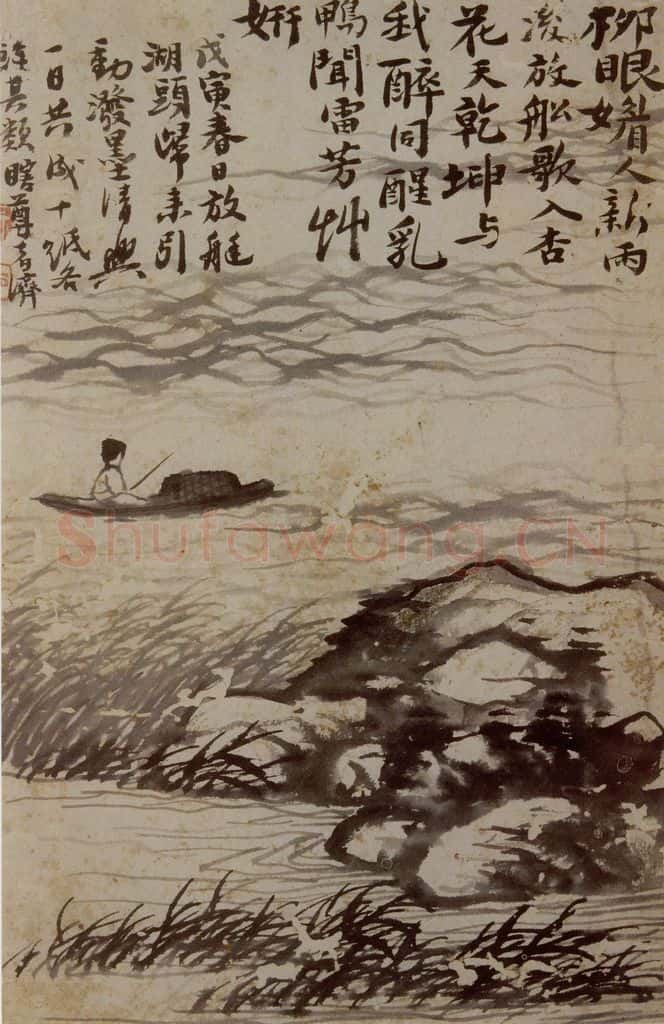 柳眼媚人新雨
後放舩歌入杏
花天乾坤与
我醉同醒乳
鴨聞雷芳艸
妍
戊寅春日放艇
湖頭歸来引
動潑墨清興
一日共成十紙各
其類瞎尊者濟
Shufawang.CN